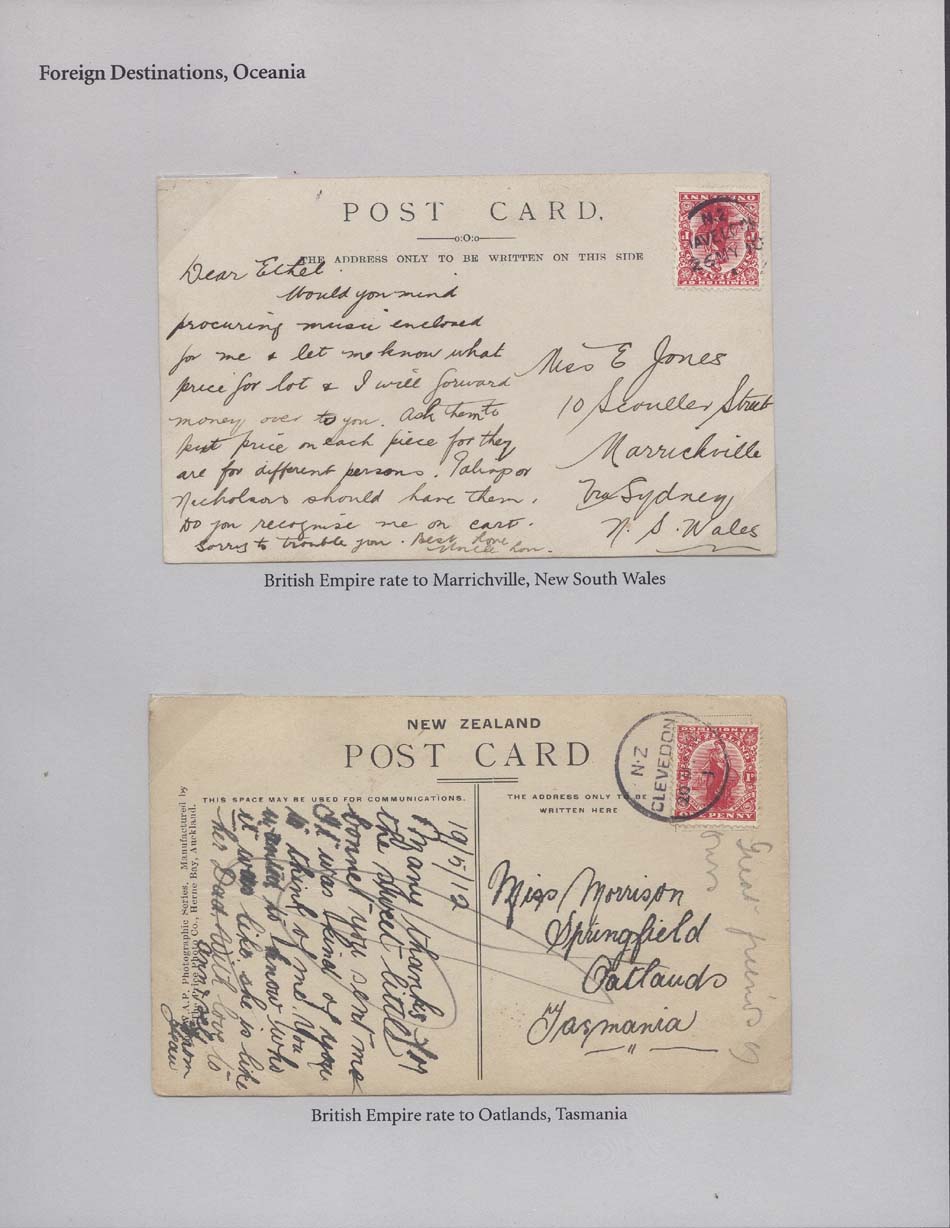 Foreign Destinations, Oceania
POST CARD.
THE ADDRESS ONLY TO BE WRITTEN ON THIS SIDE
Dear Ethel
Would you mind
procuring music enclosed
for me & let me know what
price for lot & I will forward
money over to you. Ask them to
put price on each piece for they
are for different persons. Palings or
Nicholsons should have them.
Do you recognise me on card.
Sorry to trouble you. Best love
Uncle
Miss E Jones
10 Scouller Street
Marrickville
Via Sydney
N. S. Wales
N.Z.
26 MY 10
DOMINION OF
British Empire rate to Marrichville, New South Wales
NEW ZEALAND
POST CARD
THIS SPACE MAY BE USED FOR COMMUNICATIONS.
THE ADDRESS ONLY TO BE
WRITTEN HERE
N.Z
CLEVEDON
DOMINION OF
ZEALAND
ONE PENNY
A.P. Photographic Series. Manufactured by
Price Photo Co., Herne Bay, Auckland.
19/5/12
Many thanks for
the sweet little
bonnet you sent me
It was kind of you
to think of me. You
wanted to know who
it was like. she is like
her Dad. With love to
from
Jean
Miss Morrison
Springfield
Oatlands
Tasmania
Great friends of
ours
British Empire rate to Oatlands, Tasmania